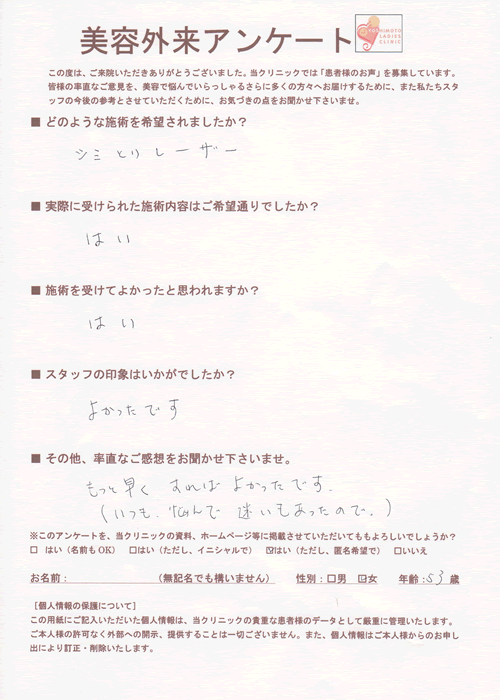 美容外来アンケート
YOSHIMOTO
LADIES
CLINIC
この度は、ご来院いただきありがとうございました。当クリニックでは「患者様のお声」を募集しています。
皆様の率直なご意見を、美容で悩んでいらっしゃるさらに多くの方々へお届けするために、また私たちスタ
ッフの今後の参考とさせていただくために、お気づきの点をお聞かせ下さいませ。
■ どのような施術を希望されましたか？
シミとりレーザー
■ 実際に受けられた施術内容はご希望通りでしたか？
はい
■ 施術を受けてよかったと思われますか？
はい
■ スタッフの印象はいかがでしたか？
よかったです
■ その他、率直なご感想をお聞かせ下さいませ。
もっと早く すればよかったです.
(いつも.悩んで 迷いもあったので.)
※このアンケートを、当クリニックの資料、ホームページ等に掲載させていただいてもよろしいでしょうか？
□ はい（名前もOK） □はい（ただし、イニシャルで） ☑はい（ただし、匿名希望で） □いいえ
お名前： （無記名でも構いません） 性別：□男 ☑女 年齢：53 歳
［個人情報の保護について］
この用紙にご記入いただいた個人情報は、当クリニックの貴重な患者様のデータとして厳重に管理いたします。
ご本人様の許可なく外部への開示、提供することは一切ございません。また、個人情報はご本人様からのお申し
出により訂正・削除いたします。